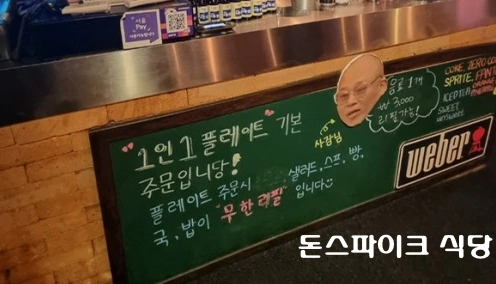 서울
Pay
1인 1 플레이트 기본
주문입니당!
플레이트 주문시 샐러드, 스프, 빵,
국, 밥이 "무한리필" 입니다
사장님
음료 1개
3,000
리필가능!
COKE, ZERO CO
SPRITE, FANT
ICED TEA
SWEET,
UNSWEET
weber
돈스파이크 식당